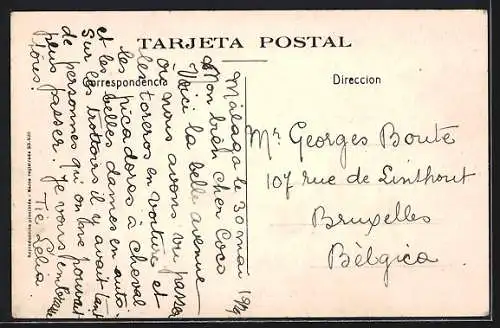 TARJETA POSTAL
Correspondencia
Direccion
Malaga le 30 mai
Mon bien cher Coco
Voici la belle avenue
où nous avons vu passer
les toreros en voiture et
les picadores à cheval
et les belles dames en auto.
Sur les trottoirs il y avait tant
de personnes qu'on ne pouvait
plus passer. Je vous embrasse
tous!
Tie Lelia.
Mr. Georges Boute
107 rue de Linthout
Bruxelles
Bèlgica